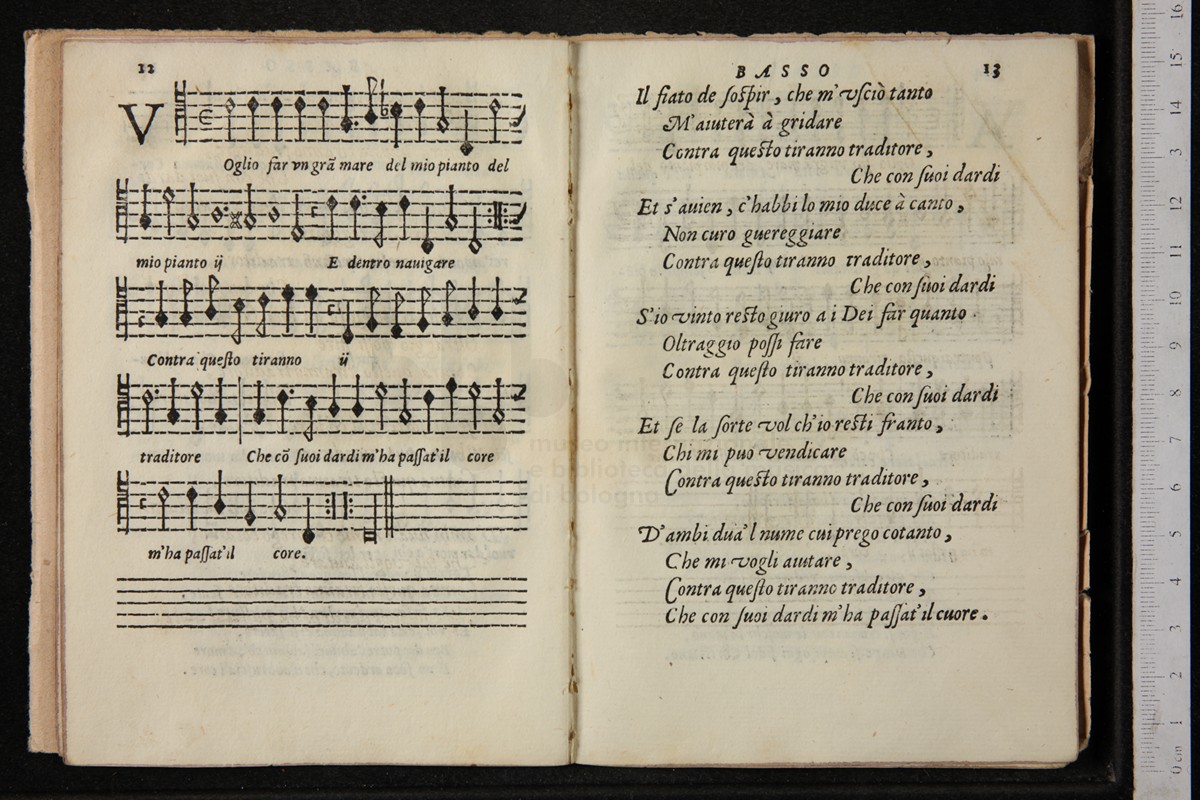 12
VOglio far vn grã mare del mio pianto del
mio pianto ij E dentro nauigare
Contra questo tiranno ij
traditore Che cõ suoi dardi m'ha passat'il core
m'ha passat'il core.
BASSO 13
Il fiato de sospir, che m'vsciò tanto
M'aiuterà à gridare
Contra questo tiranno traditore,
Che con suoi dardi
Et s'auien, c'habbi lo mio duce à canto,
Non curo guereggiare
Contra questo tiranno traditore,
Che con suoi dardi
S'io vinto resto giuro a i Dei far quanto
Oltraggio possi fare
Contra questo tiranno traditore,
Che con suoi dardi
Et se la sorte vol ch'io resti franto,
Chi mi può vendicare
Contra questo tiranno traditore,
Che con suoi dardi
D'ambi dua'l nume cui prego cotanto,
Che mi vogli aiutare,
Contra questo tiranno traditore,
Che con suoi dardi m'ha passat'il cuore.
museo
e biblioteca
di bologna
0 cm 1 2 3 4 5 6 7 8 9 10 11 12 13 14 15 16